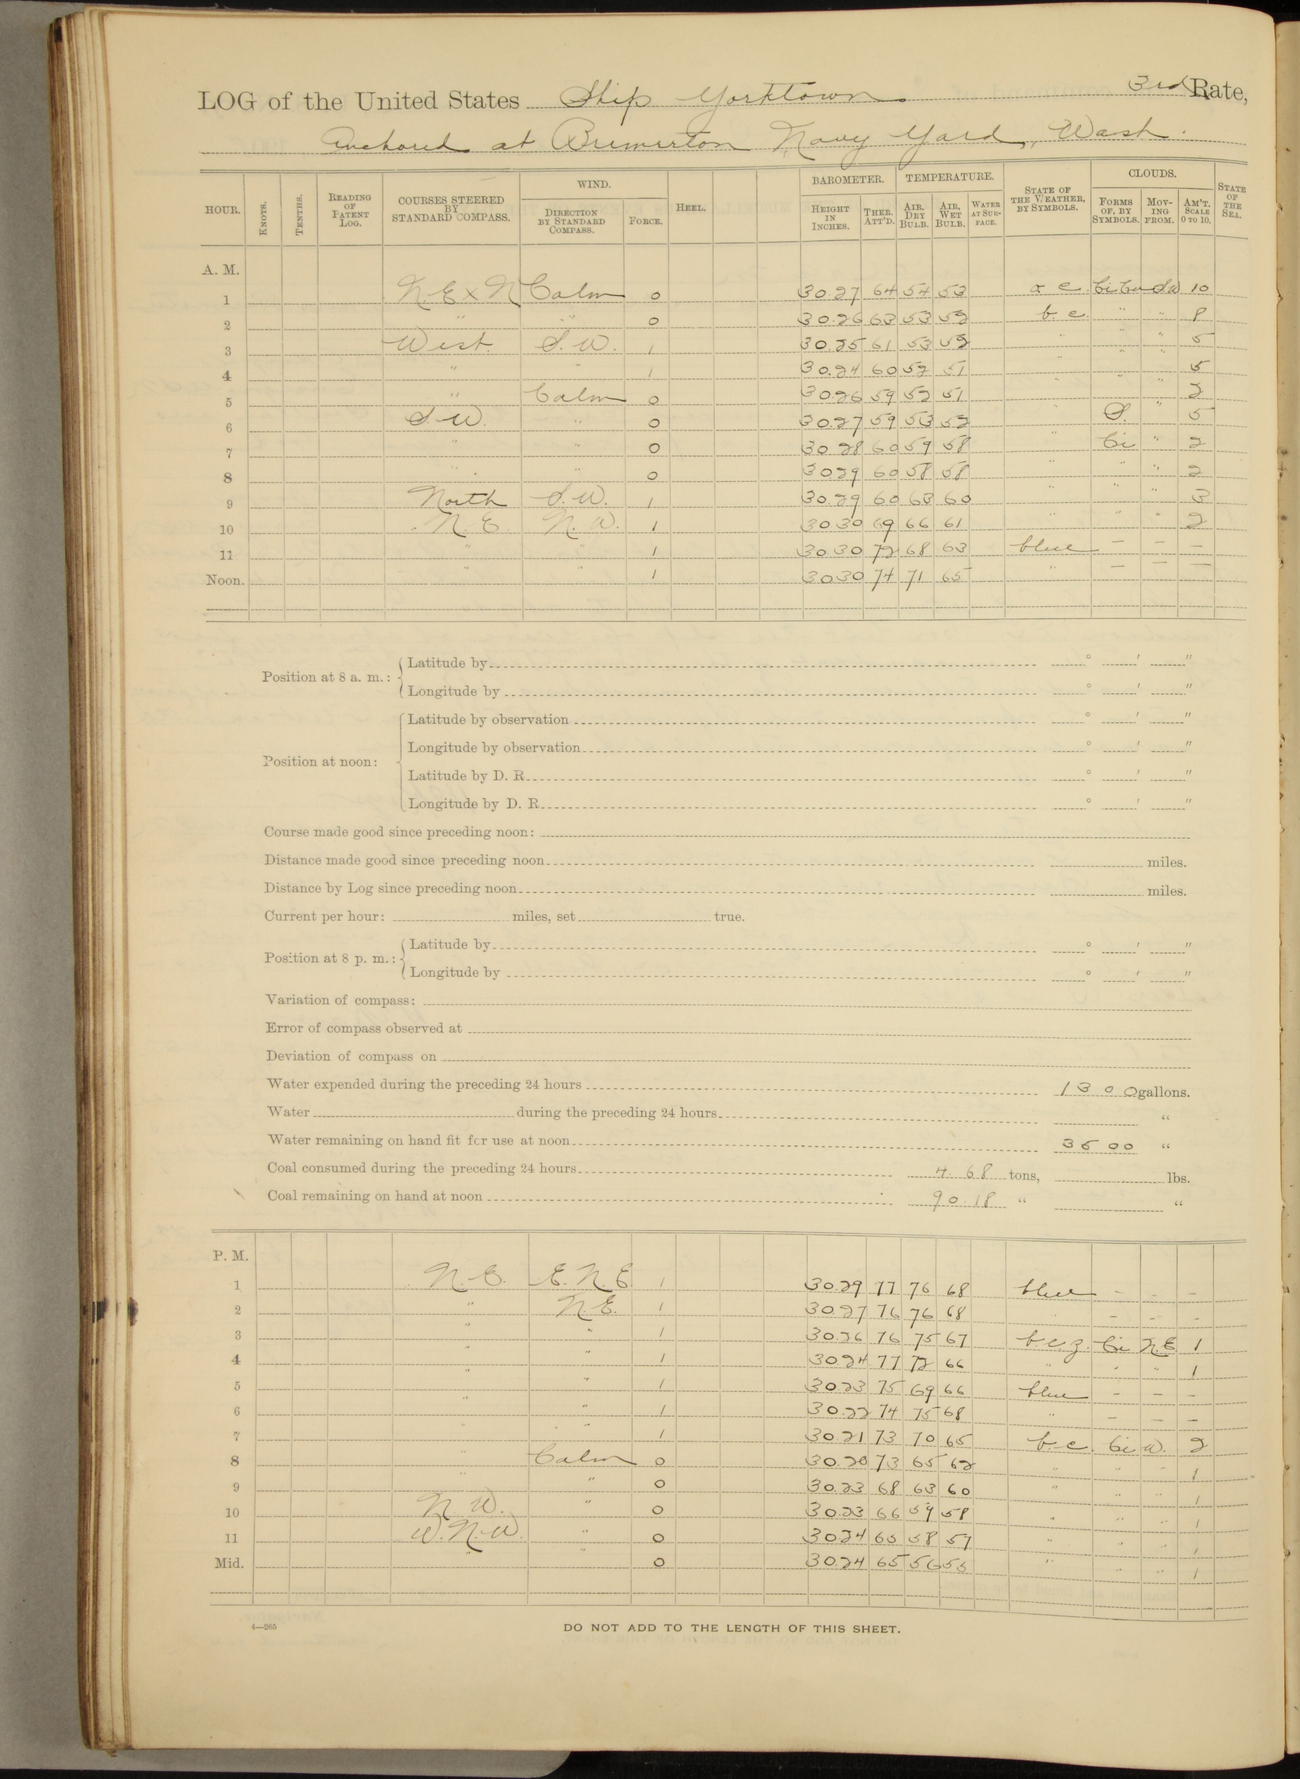 LOG of the United States Ship Yorktown 3rd Rate,
Anchored at Bremerton Navy Yard, Wash.
HOUR. KNOTS. TENTHS. READING OF PATENT LOG. COURSES STEERED BY STANDARD COMPASS. WIND. DIRECTION BY STANDARD COMPASS. FORCE. HEEL. BAROMETER. HEIGHT IN INCHES. THER. ATT'D. TEMPERATURE. AIR, DRY BULB. AIR, WET BULB. WATER AT SURFACE. STATE OF THE WEATHER, BY SYMBOLS. CLOUDS. FORMS OF, BY SYMBOLS. MOVING FROM. AM'T. SCALE 0 TO 10. STATE OF THE SEA.
A. M.
1 N E x N Calm 0 30.27 64 54 53 o c Ci Cu SW 10
2 " " 0 30.26 63 53 52 b c " " 8
3 West S.W. 1 30.25 61 53 52 " " " 5
4 " " 1 30.24 60 52 51 " " " 5
5 " Calm 0 30.26 59 52 51 " " " 2
6 S W. " 0 30.27 59 53 52 " S. " 5
7 " " 0 30.28 60 59 58 " Ci " 2
8 " " 0 30.29 60 58 58 " " " 2
9 North S.W. 1 30.29 60 63 60 " " " 3
10 N. E. N. W. 1 30.30 69 66 61 " " " 2
11 " " 1 30.30 72 68 63 blue — — —
Noon. " " 1 30.30 74 71 65 " — — —
Position at 8 a. m.: Latitude by ° ' "
Longitude by ° ' "
Position at noon: Latitude by observation ° ' "
Longitude by observation ° ' "
Latitude by D. R. ° ' "
Longitude by D. R. ° ' "
Course made good since preceding noon:
Distance made good since preceding noon miles.
Distance by Log since preceding noon miles.
Current per hour: miles, set true.
Position at 8 p. m.: Latitude by ° ' "
Longitude by ° ' "
Variation of compass:
Error of compass observed at
Deviation of compass on
Water expended during the preceding 24 hours 1300 gallons.
Water during the preceding 24 hours "
Water remaining on hand fit for use at noon 3500 "
Coal consumed during the preceding 24 hours 4.68 tons, lbs.
Coal remaining on hand at noon 90.18 " "
P. M.
1 N. E. E. N. E. 1 30.29 77 76 68 blue - - -
2 " N. E. 1 30.27 76 76 68 " - - -
3 " " 1 30.26 76 75 67 b.c.z. Ci N.E. 1
4 " " 1 30.24 77 72 66 " " " 1
5 " " 1 30.23 75 69 66 blue - - -
6 " " 1 30.22 74 75 68 " - - -
7 " " 1 30.21 73 70 65 b.c. Ci W. 2
8 " Calm 0 30.20 73 65 62 " " " 1
9 " " 0 30.23 68 63 60 " " " 1
10 N W. " 0 30.23 66 59 58 " " " 1
11 W. N. W. " 0 30.24 65 58 57 " " " 1
Mid. " " 0 30.24 65 56 55 " " " 1
4—265
DO NOT ADD TO THE LENGTH OF THIS SHEET.